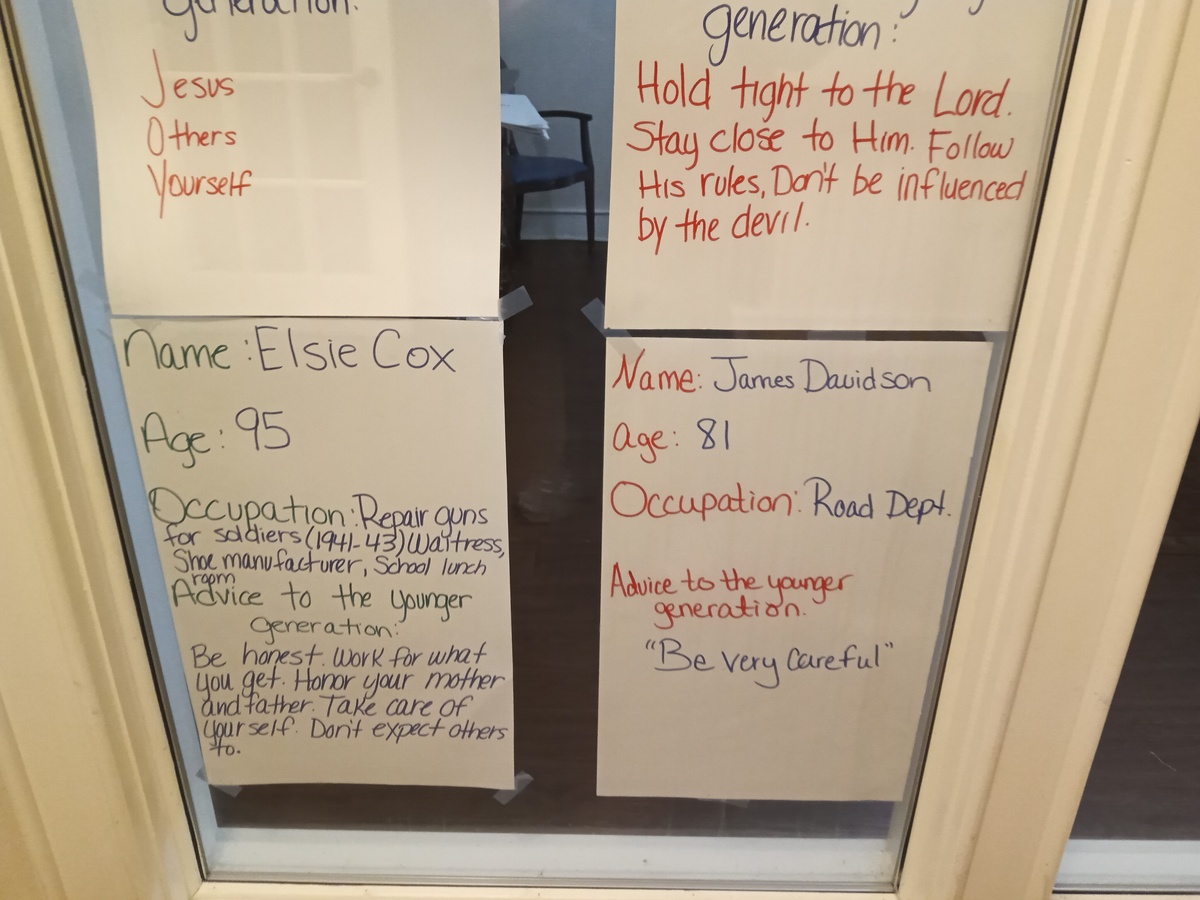 generation:
Jesus
Others
Yourself
generation:
Hold tight to the Lord.
Stay close to Him. Follow
His rules, Don't be influenced
by the devil.
Name: Elsie Cox
Age: 95
Occupation: Repair guns
for soldiers (1941-43) Waitress,
Shoe manufacturer, School lunch
room
Advice to the younger
generation:
Be honest. Work for what
you get. Honor your mother
and father. Take care of
yourself. Don't expect others
to.
Name: James Davidson
age: 81
Occupation: Road Dept.
Advice to the younger
generation.
"Be very careful"